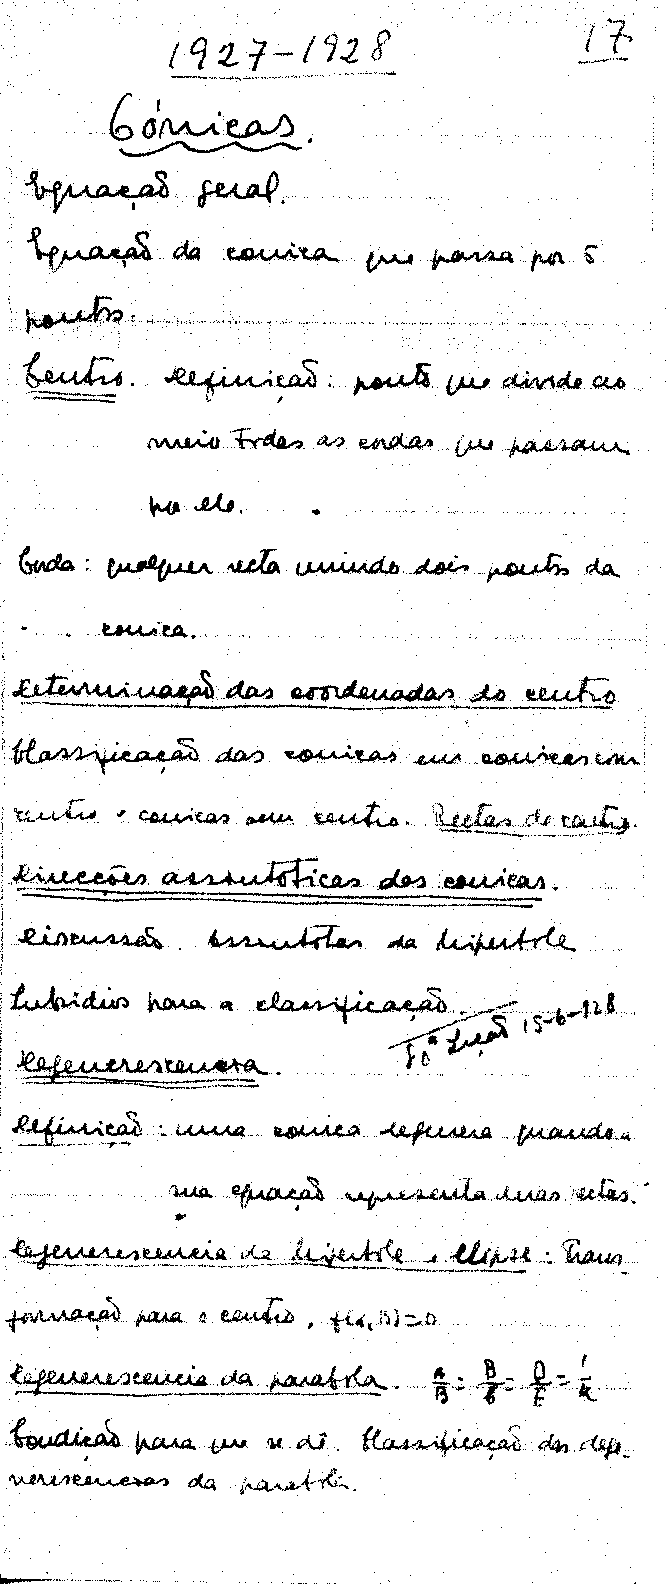 1927-1928
17
Cónicas.
Equação geral.
Equação da conica que passa por 5
pontos.
Centro. Definição: ponto que divide ao
meio todas as cordas que passam
por ele.
Corda: qualquer recta unindo dois pontos da
conica.
Determinação das coordenadas do centro
Classificação das conicas em conicas com
centro e conicas sem centro. Rectas de centro.
Direcções assintóticas das conicas.
Discussão. Assintotas da hiperbole
Subsidios para a classificação.
Lição 15-6-928
Degenerescencia.
Definição: uma conica degenera quando a
sua equação representa duas rectas.
Degenerescencia da hiperbole e elipse: Trans-
formação para o centro,
Degenerescencia da parabola. A/B = B/C = D/E = 1/K
Condição para que se dê. Classificação das dege-
nerescencias da parabola.